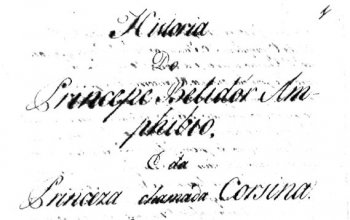 Historia
Do
Principe Belidór Am-
phibio.
E da
Princeza chamada Corsina.